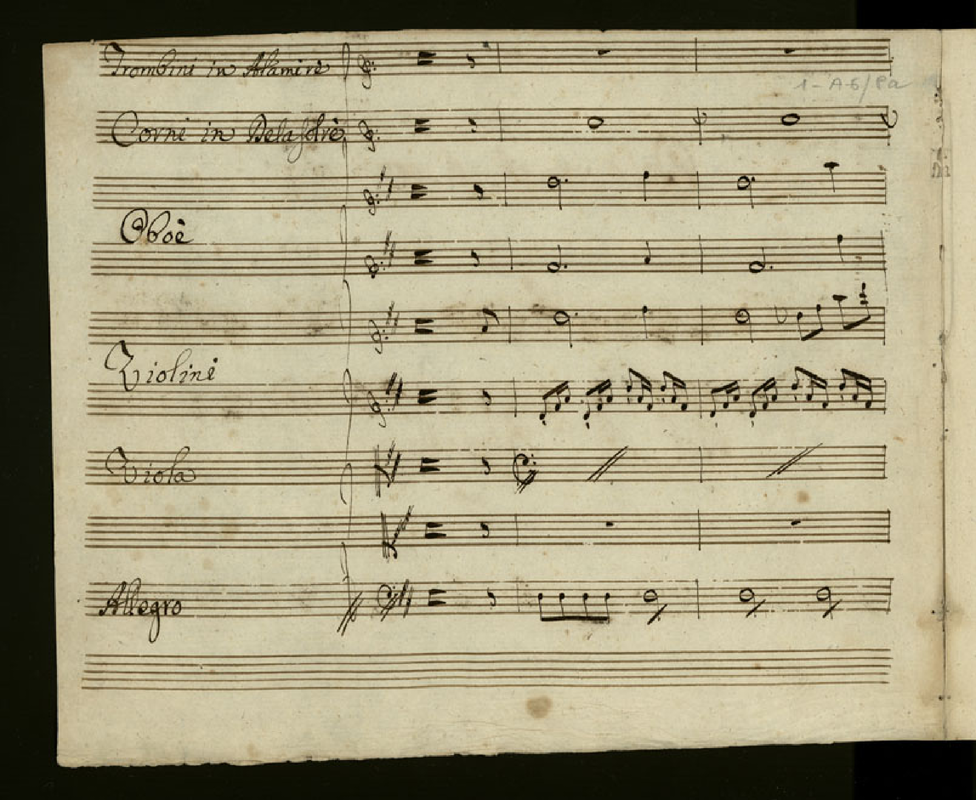 Trombini in Alamirè
1 - A-6/
Corni in Delasolrè
Oboè
Violini
Viola
Allegro